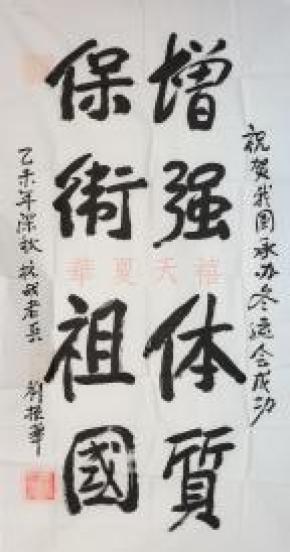 祝贺我国承办冬运会成功
增强体质
保衛祖國
乙未年深秋 抗战老兵 刘振華
華夏天禧